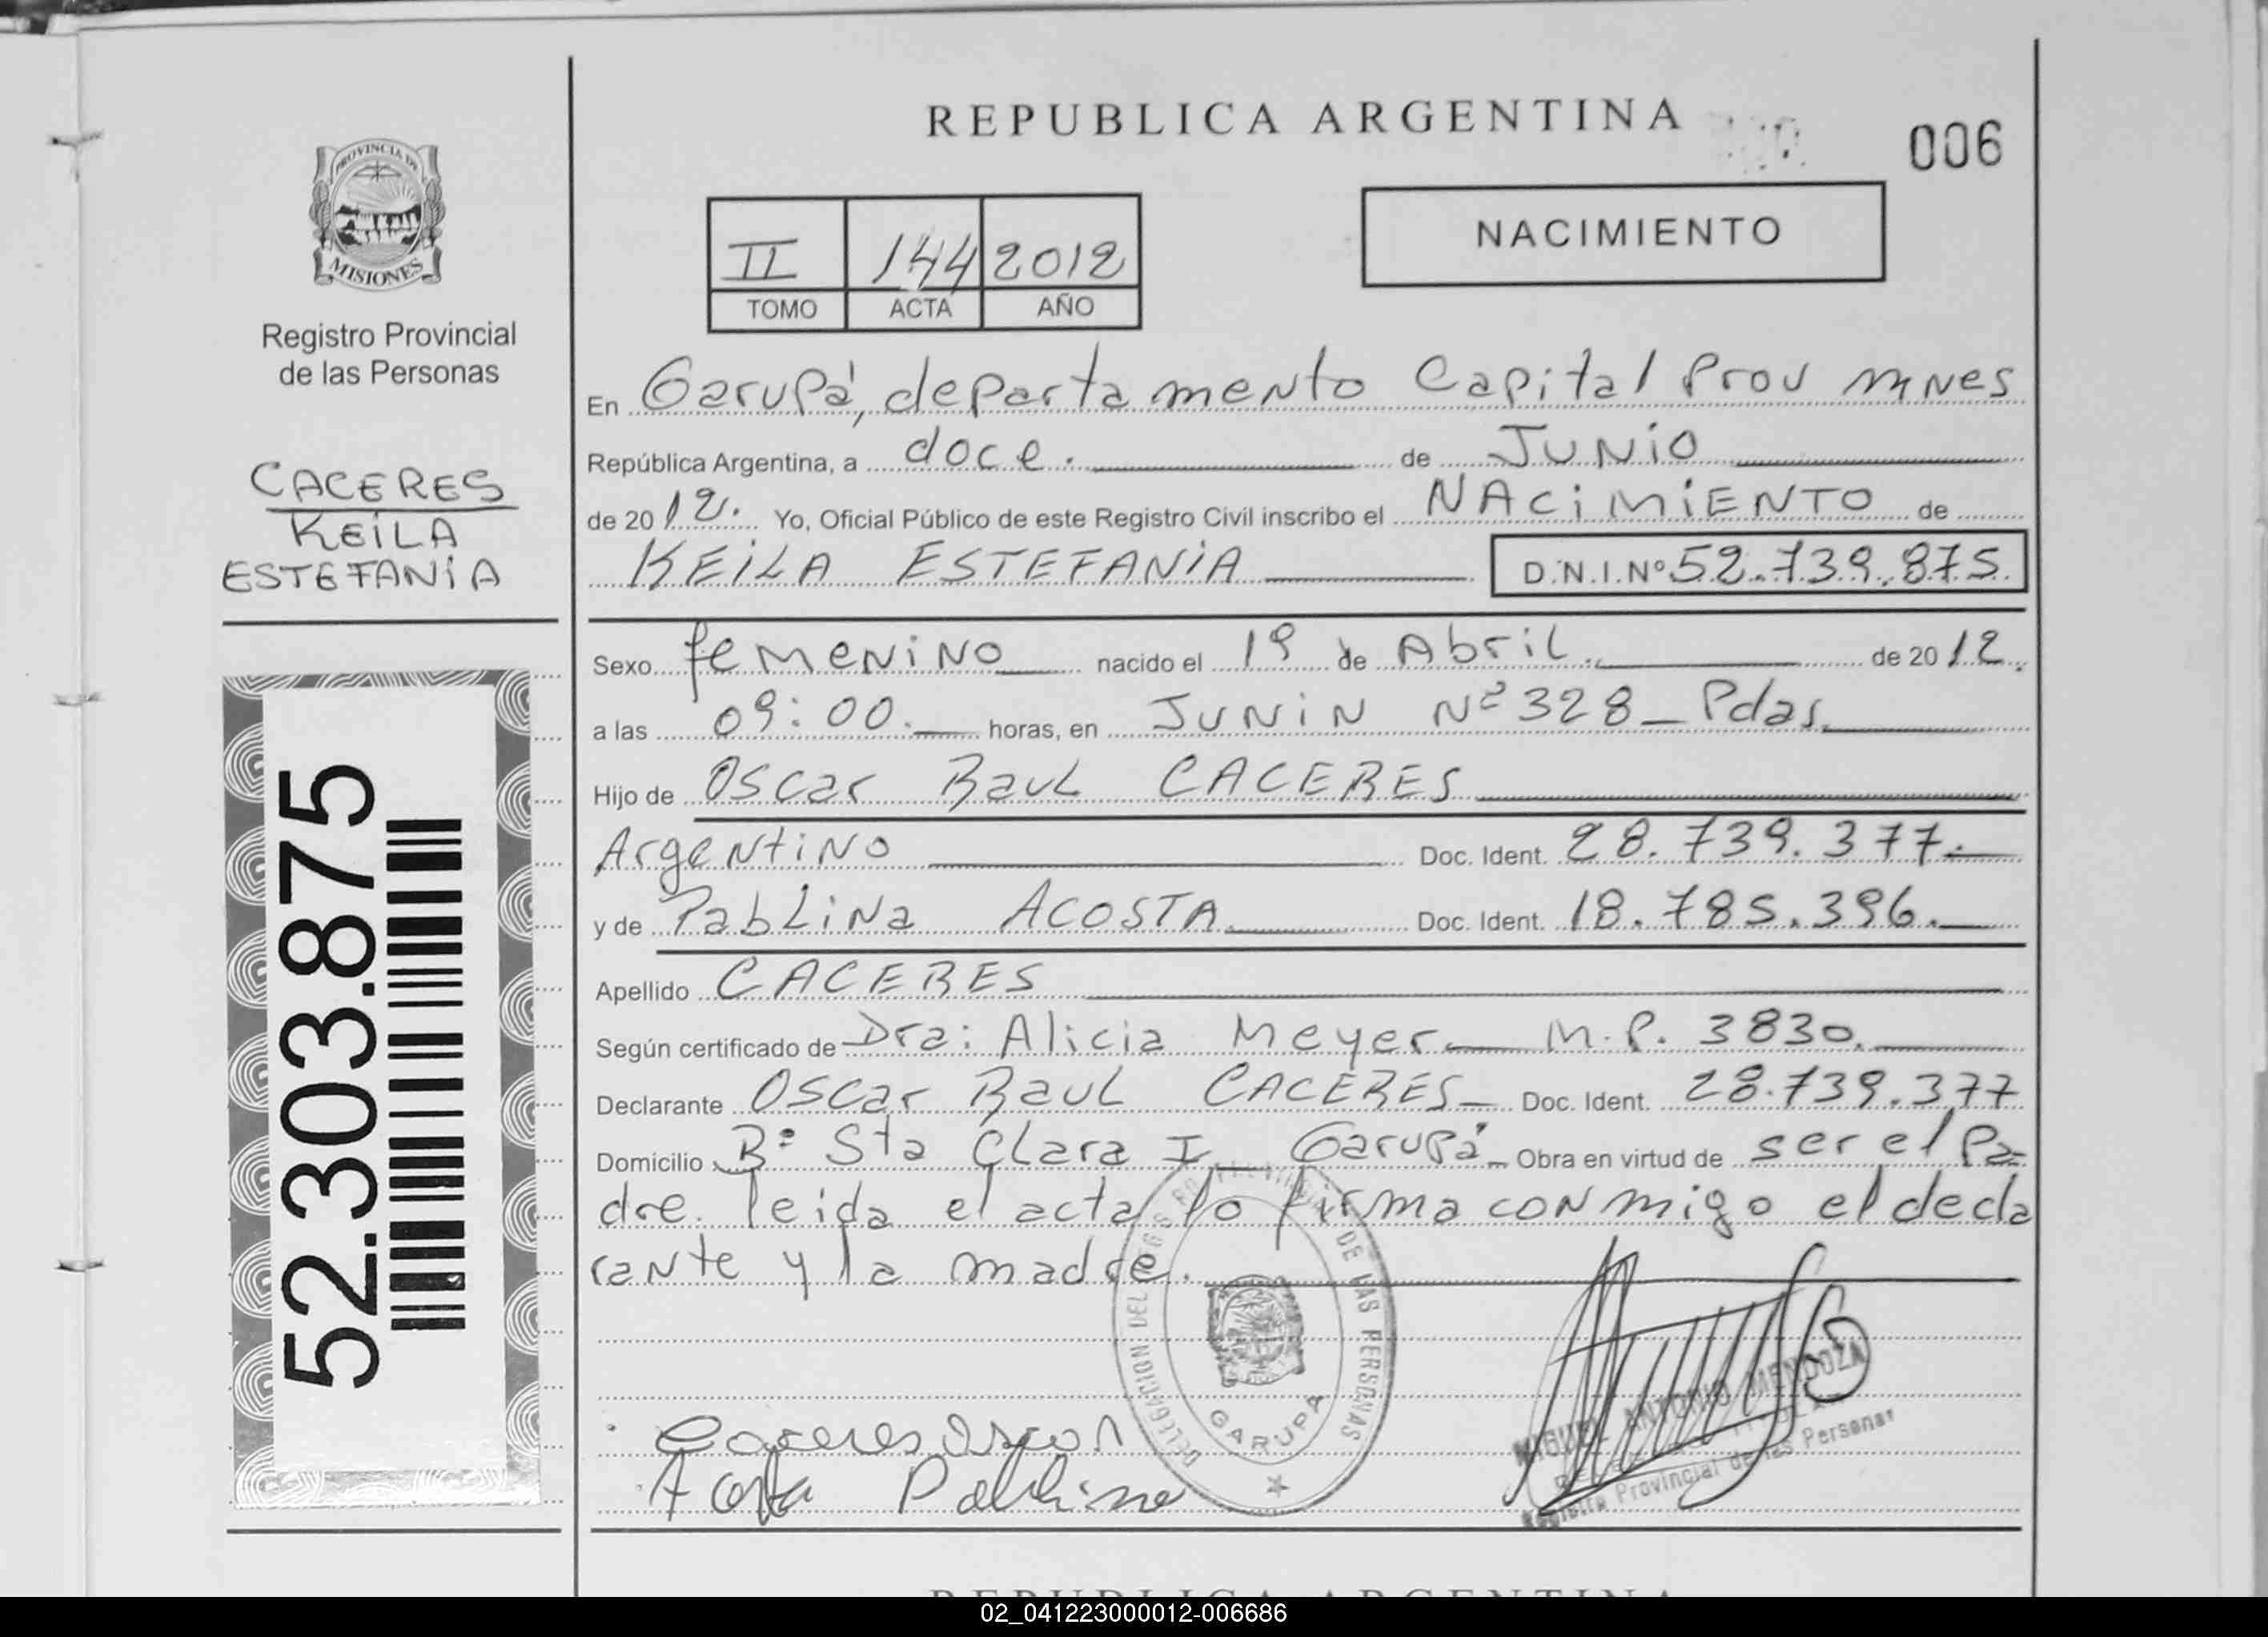 REPUBLICA ARGENTINA
006
PROVINCIA DE
MISIONES
Registro Provincial
de las Personas
CACERES
KEILA
ESTEFANIA
52.303.875
NACIMIENTO
II 144 2012
TOMO ACTA AÑO
En Garupá, departamento Capital Prov Mnes
República Argentina, a doce. de JUNIO
de 2012. Yo, Oficial Público de este Registro Civil inscribo el NACIMIENTO de
KEILA ESTEFANIA D.N.I.Nº 52.739.875
Sexo femenino nacido el 19 de Abril. de 2012.
a las 09:00. horas, en JUNIN Nº 328 - Pdas.
Hijo de Oscar Raul CACERES
Argentino Doc. Ident. 28.739.377.
y de Pablina ACOSTA Doc. Ident. 18.785.396.
Apellido CACERES
Según certificado de Dra: Alicia Meyer M.P. 3830.
Declarante Oscar Raul CACERES Doc. Ident. 28.739.377
Domicilio Bº Sta Clara I - Garupá - Obra en virtud de ser el Pa-
dre. leida el acta lo firma conmigo el decla
rante y la madre.
DELEGACION DEL REGISTRO PROVINCIAL DE LAS PERSONAS
GARUPA
Caceres Oscar
Acosta Pablina
MIGUEL ANTONIO MENDOZA
Registro Provincial de las Personas
REPUBLICA ARGENTINA
02_041223000012-006686